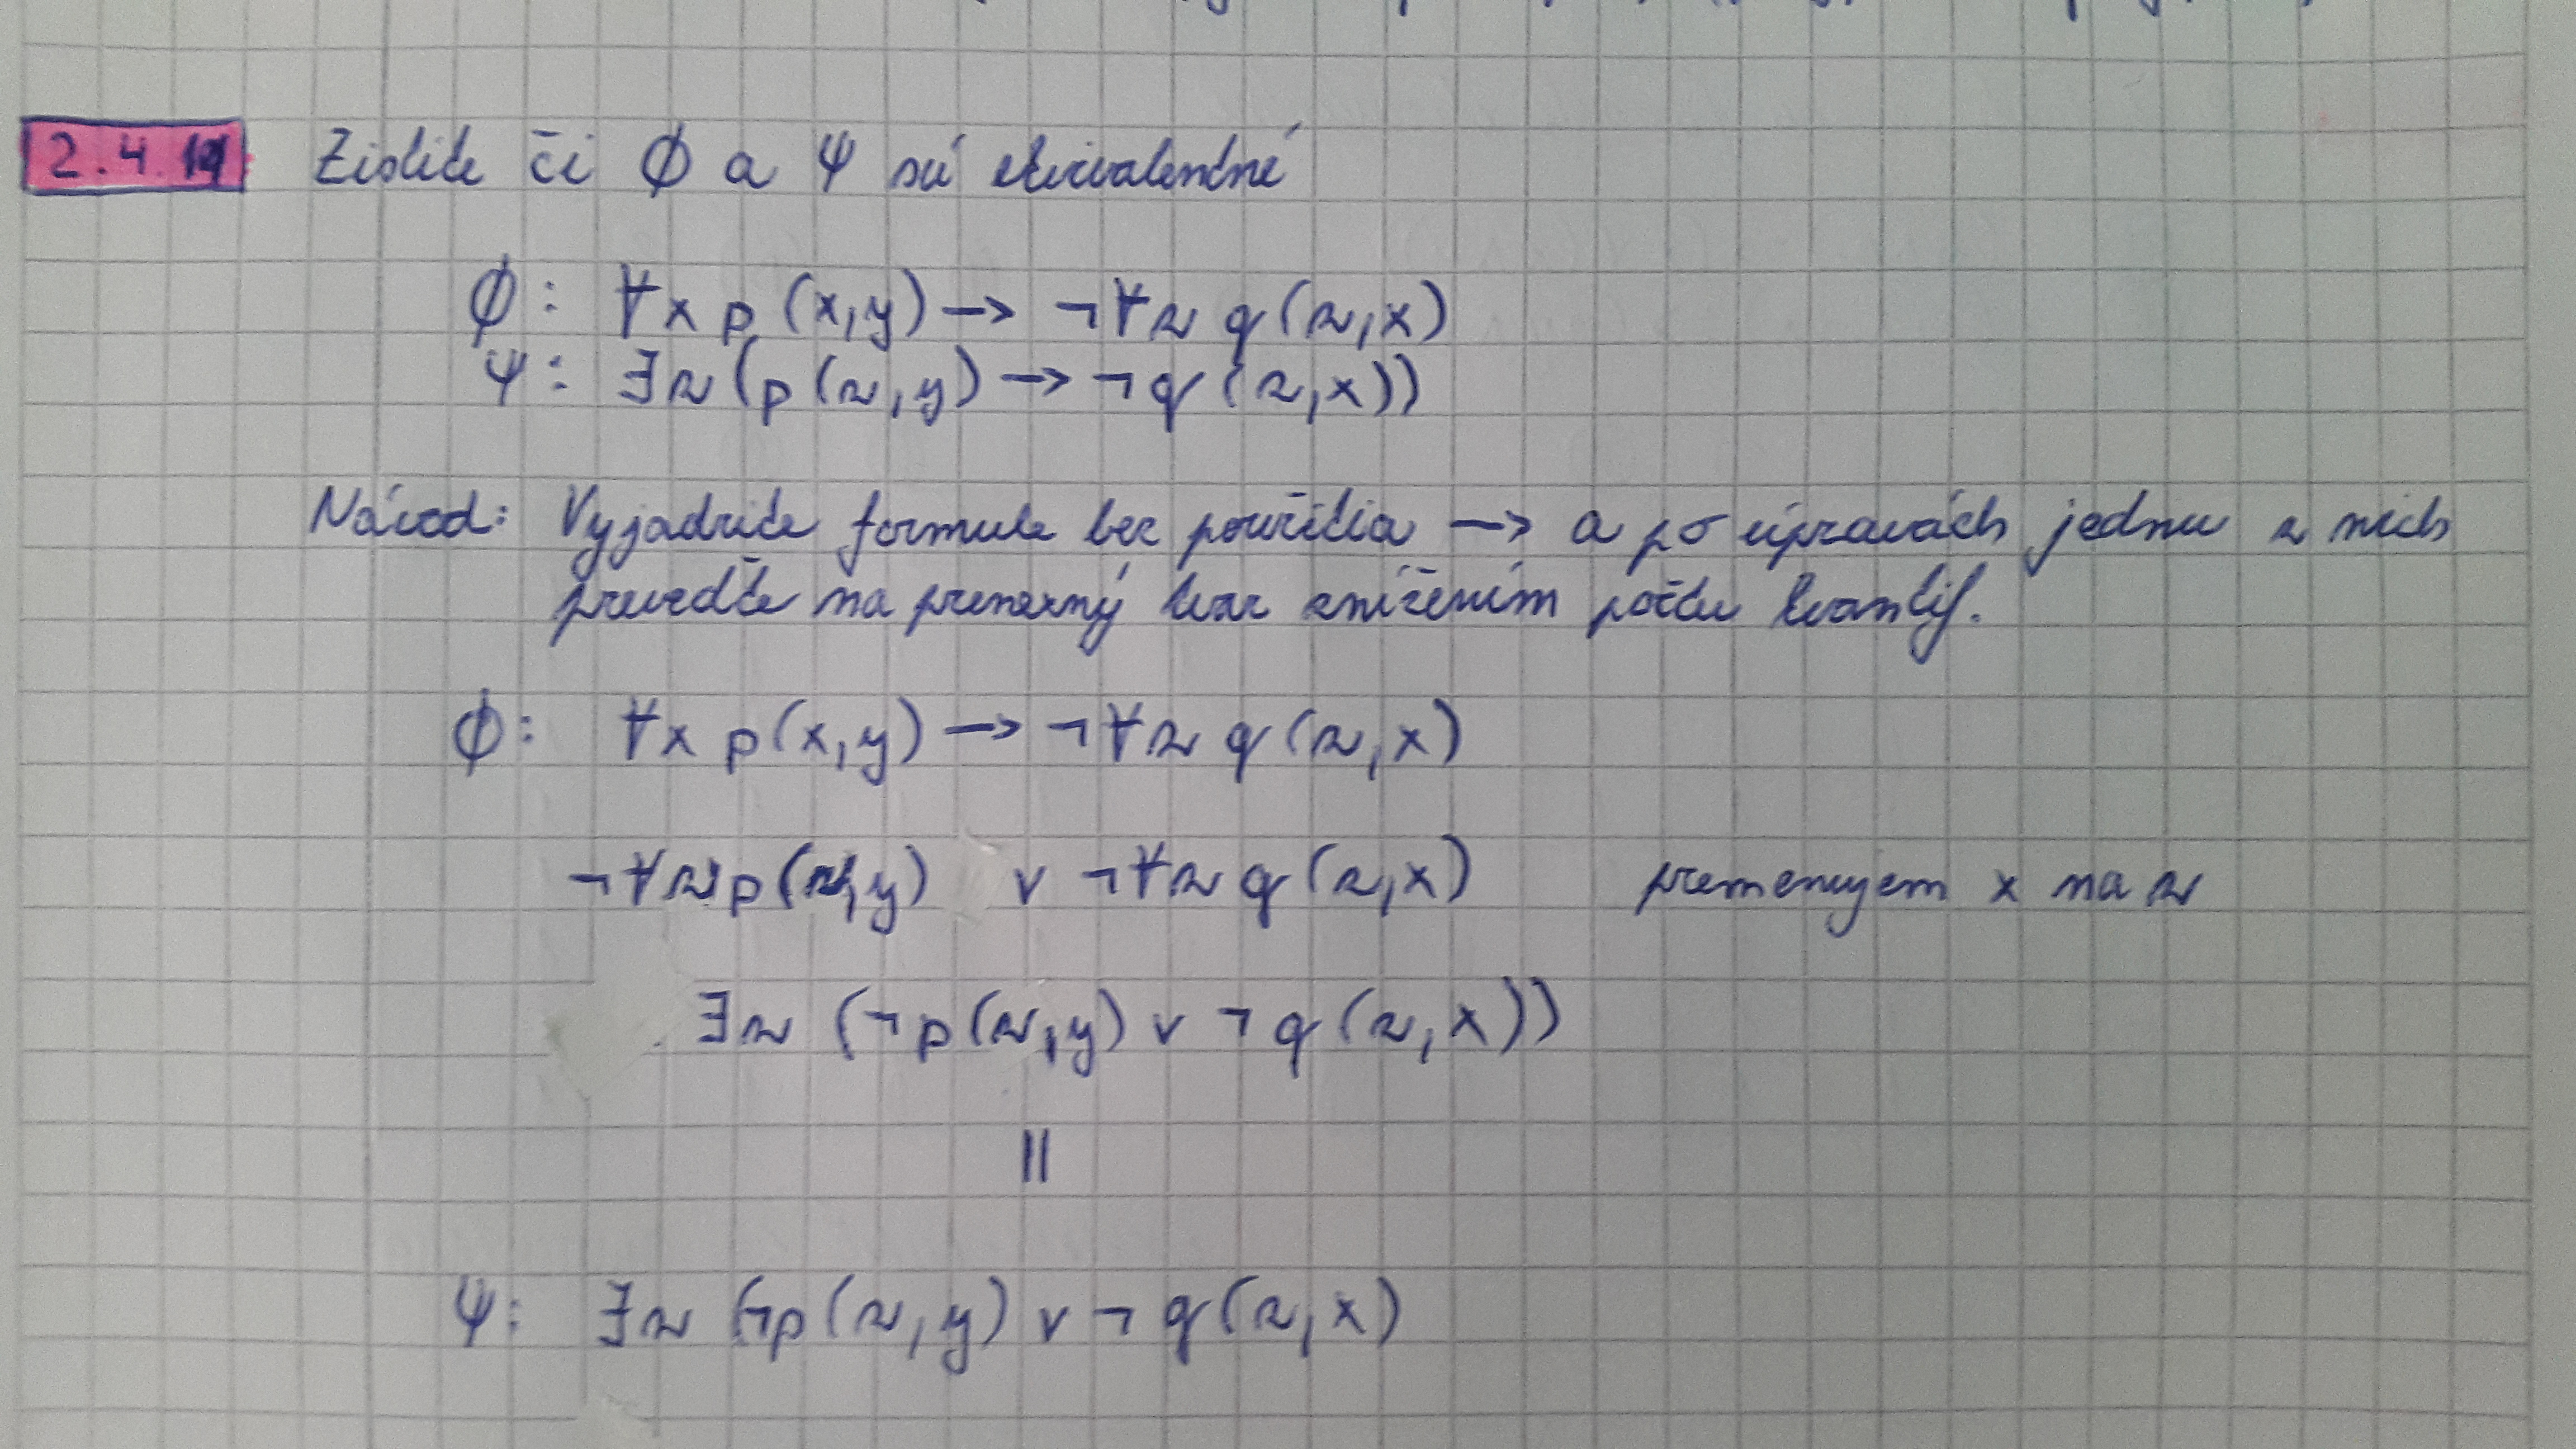 2.4.19 Zistite či Φ a Ψ sú ekvivalentné
Φ: ∀x p(x,y) → ¬∀z q(z,x)
Ψ: ∃z (p(z,y) → ¬q(z,x))
Návod: Vyjadrite formule bez použitia → a po úpravách jednu z nich
prevedťe na prenexný tvar znížením počtu kvantif.
Φ: ∀x p(x,y) → ¬∀z q(z,x)
¬∀z p(z,y) ∨ ¬∀z q(z,x) premenujem x na z
∃z (¬p(z,y) ∨ ¬q(z,x))
||
Ψ: ∃z (¬p(z,y) ∨ ¬q(z,x)